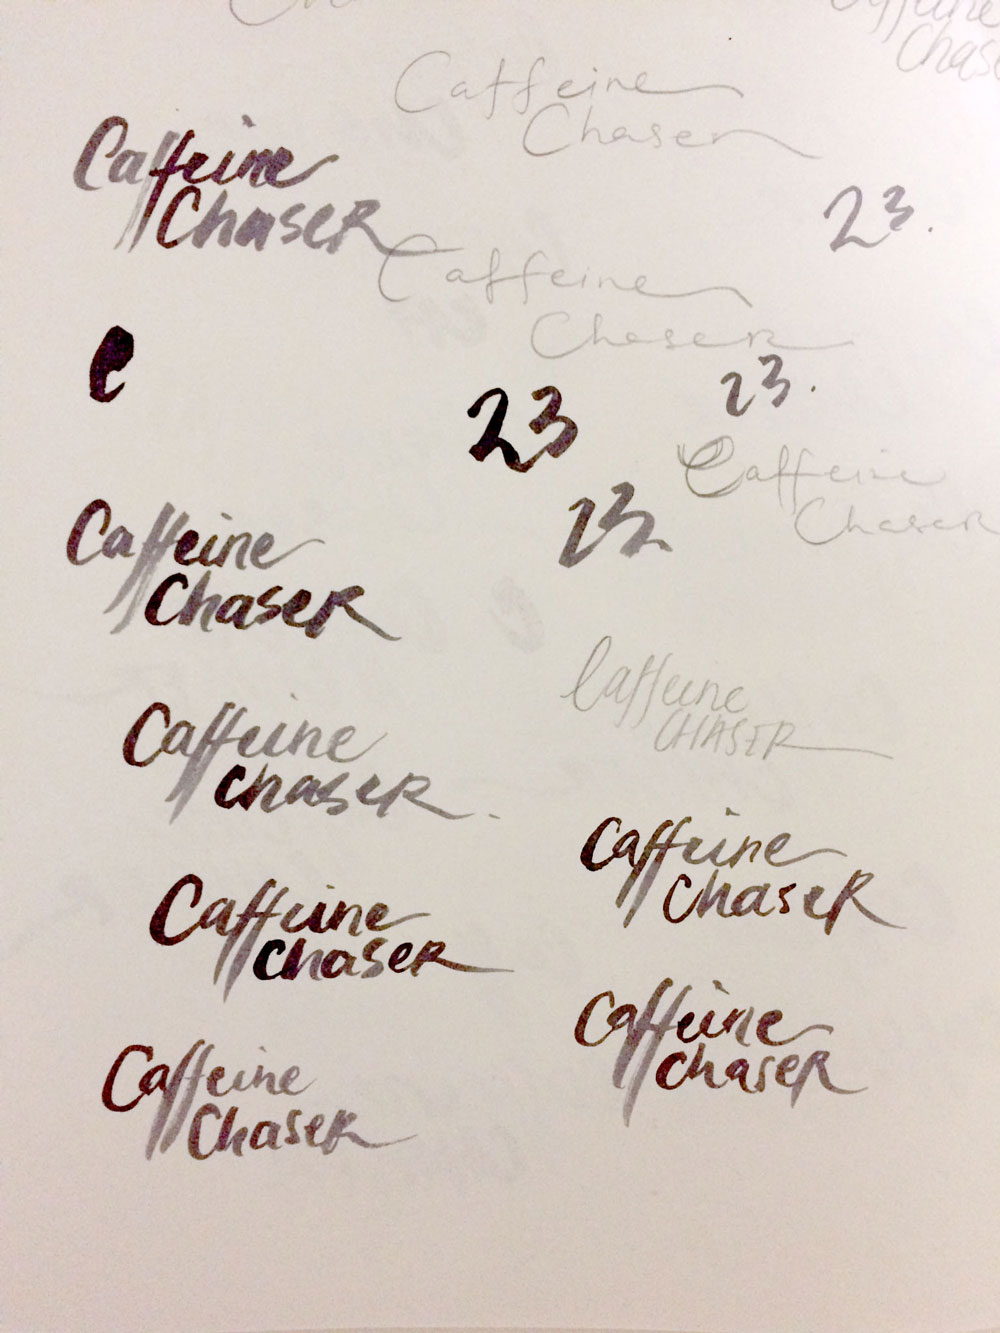 Caffeine
Chaser
Caffeine
Chaser
Caffeine
ChaseR
23.
Caffeine
ChaseR
e
23
23.
Caffeine
ChaseR
Caffeine
ChaseR
23.
Caffeine
CHASER
Caffeine
chaseR
Caffeine
ChaseR
Caffeine
chaseR
Caffeine
chaseR
Caffeine
ChaseR